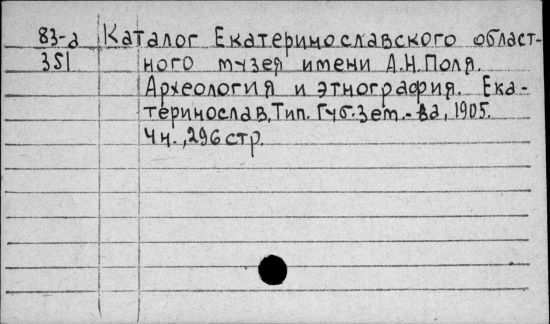 83-а Каталог Екатеринославского област-
351 ного музея имени А.Н.Поля.
Археология и этнография. Ека-
теринослав, Тип. Губ. Зем.-ва, 1905.
4н., 296 стр.